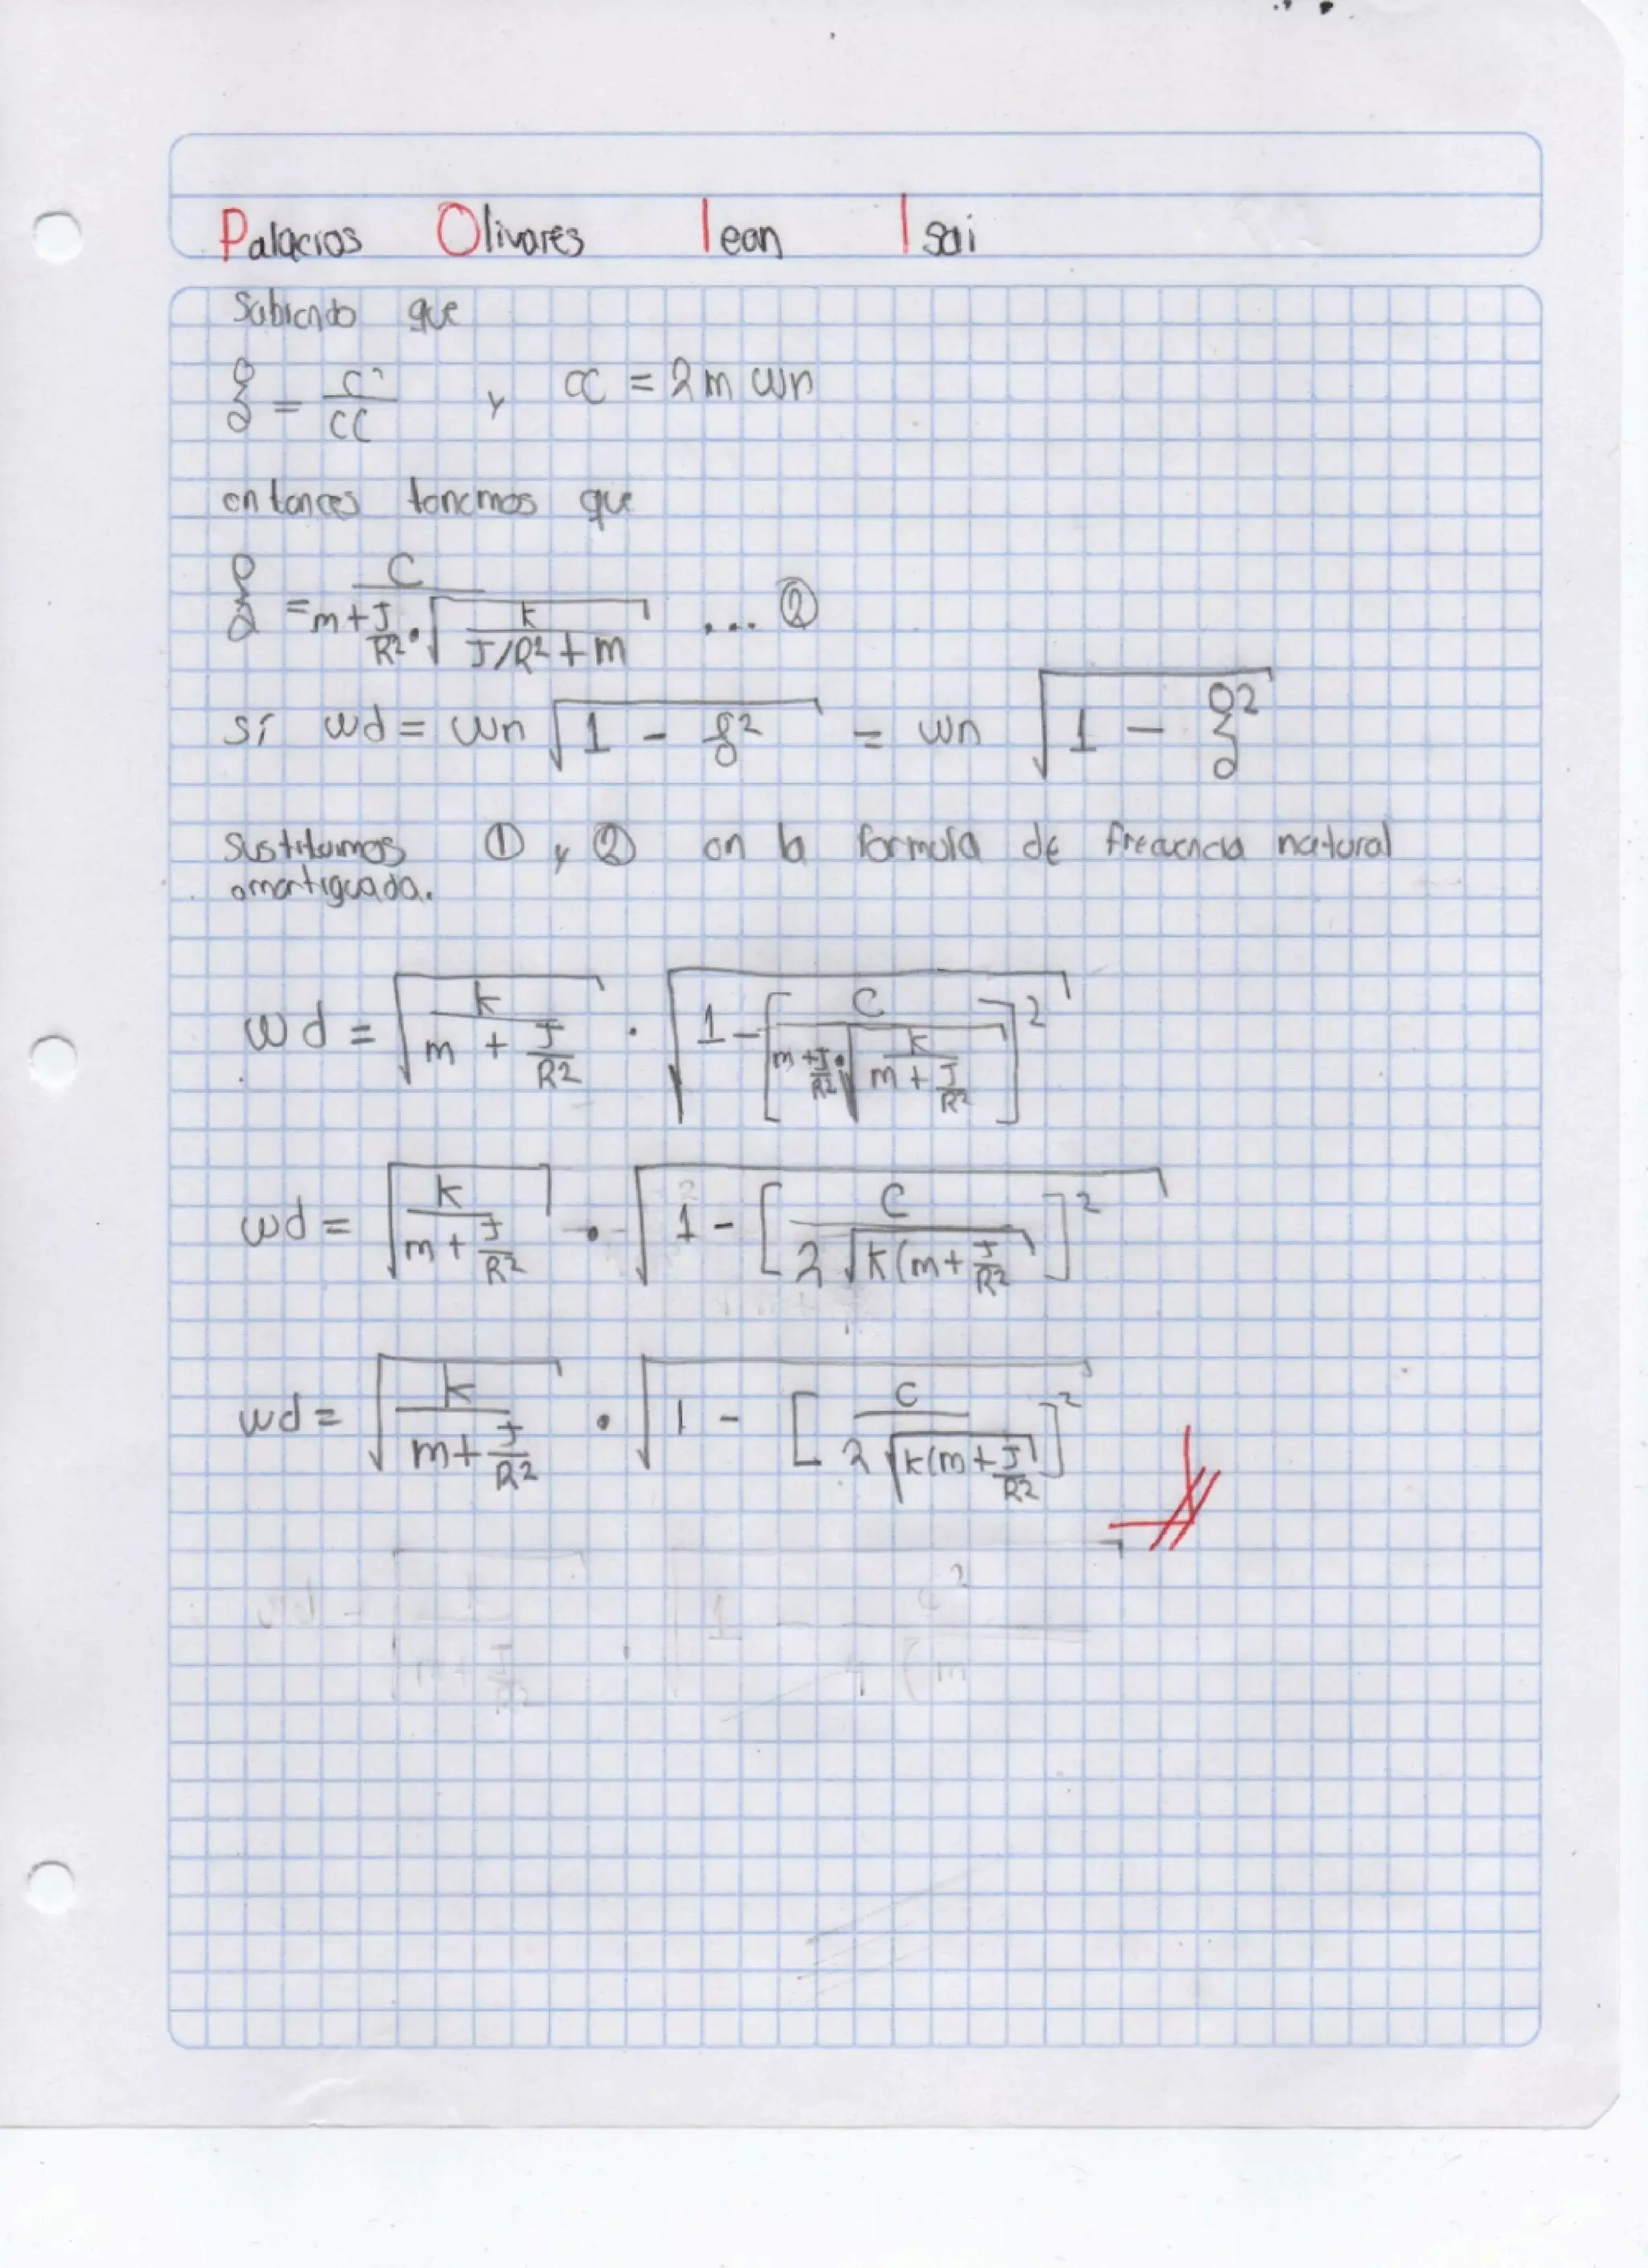 Palacios Olivares Iean Isai
Sabiendo que
ξ = c / cc y cc = 2m wn
entonces tenemos que
ξ = C / (m + J/R² · √(k / (J/R² + m))) ... ②
sí wd = wn √(1 - ξ²) = wn √(1 - ξ²)
sustituimos ① y ② en la formula de frecuencia natural
amortiguada.
wd = √(k / (m + J/R²)) · √(1 - [C / (m + J/R² · √(k / (m + J/R²)))]²)
wd = √(k / (m + J/R²)) · √(1 - [C / (2 √(k(m + J/R²))]²)
wd = √(k / (m + J/R²)) · √(1 - [c / (2 √(k(m + J/R²))]²)